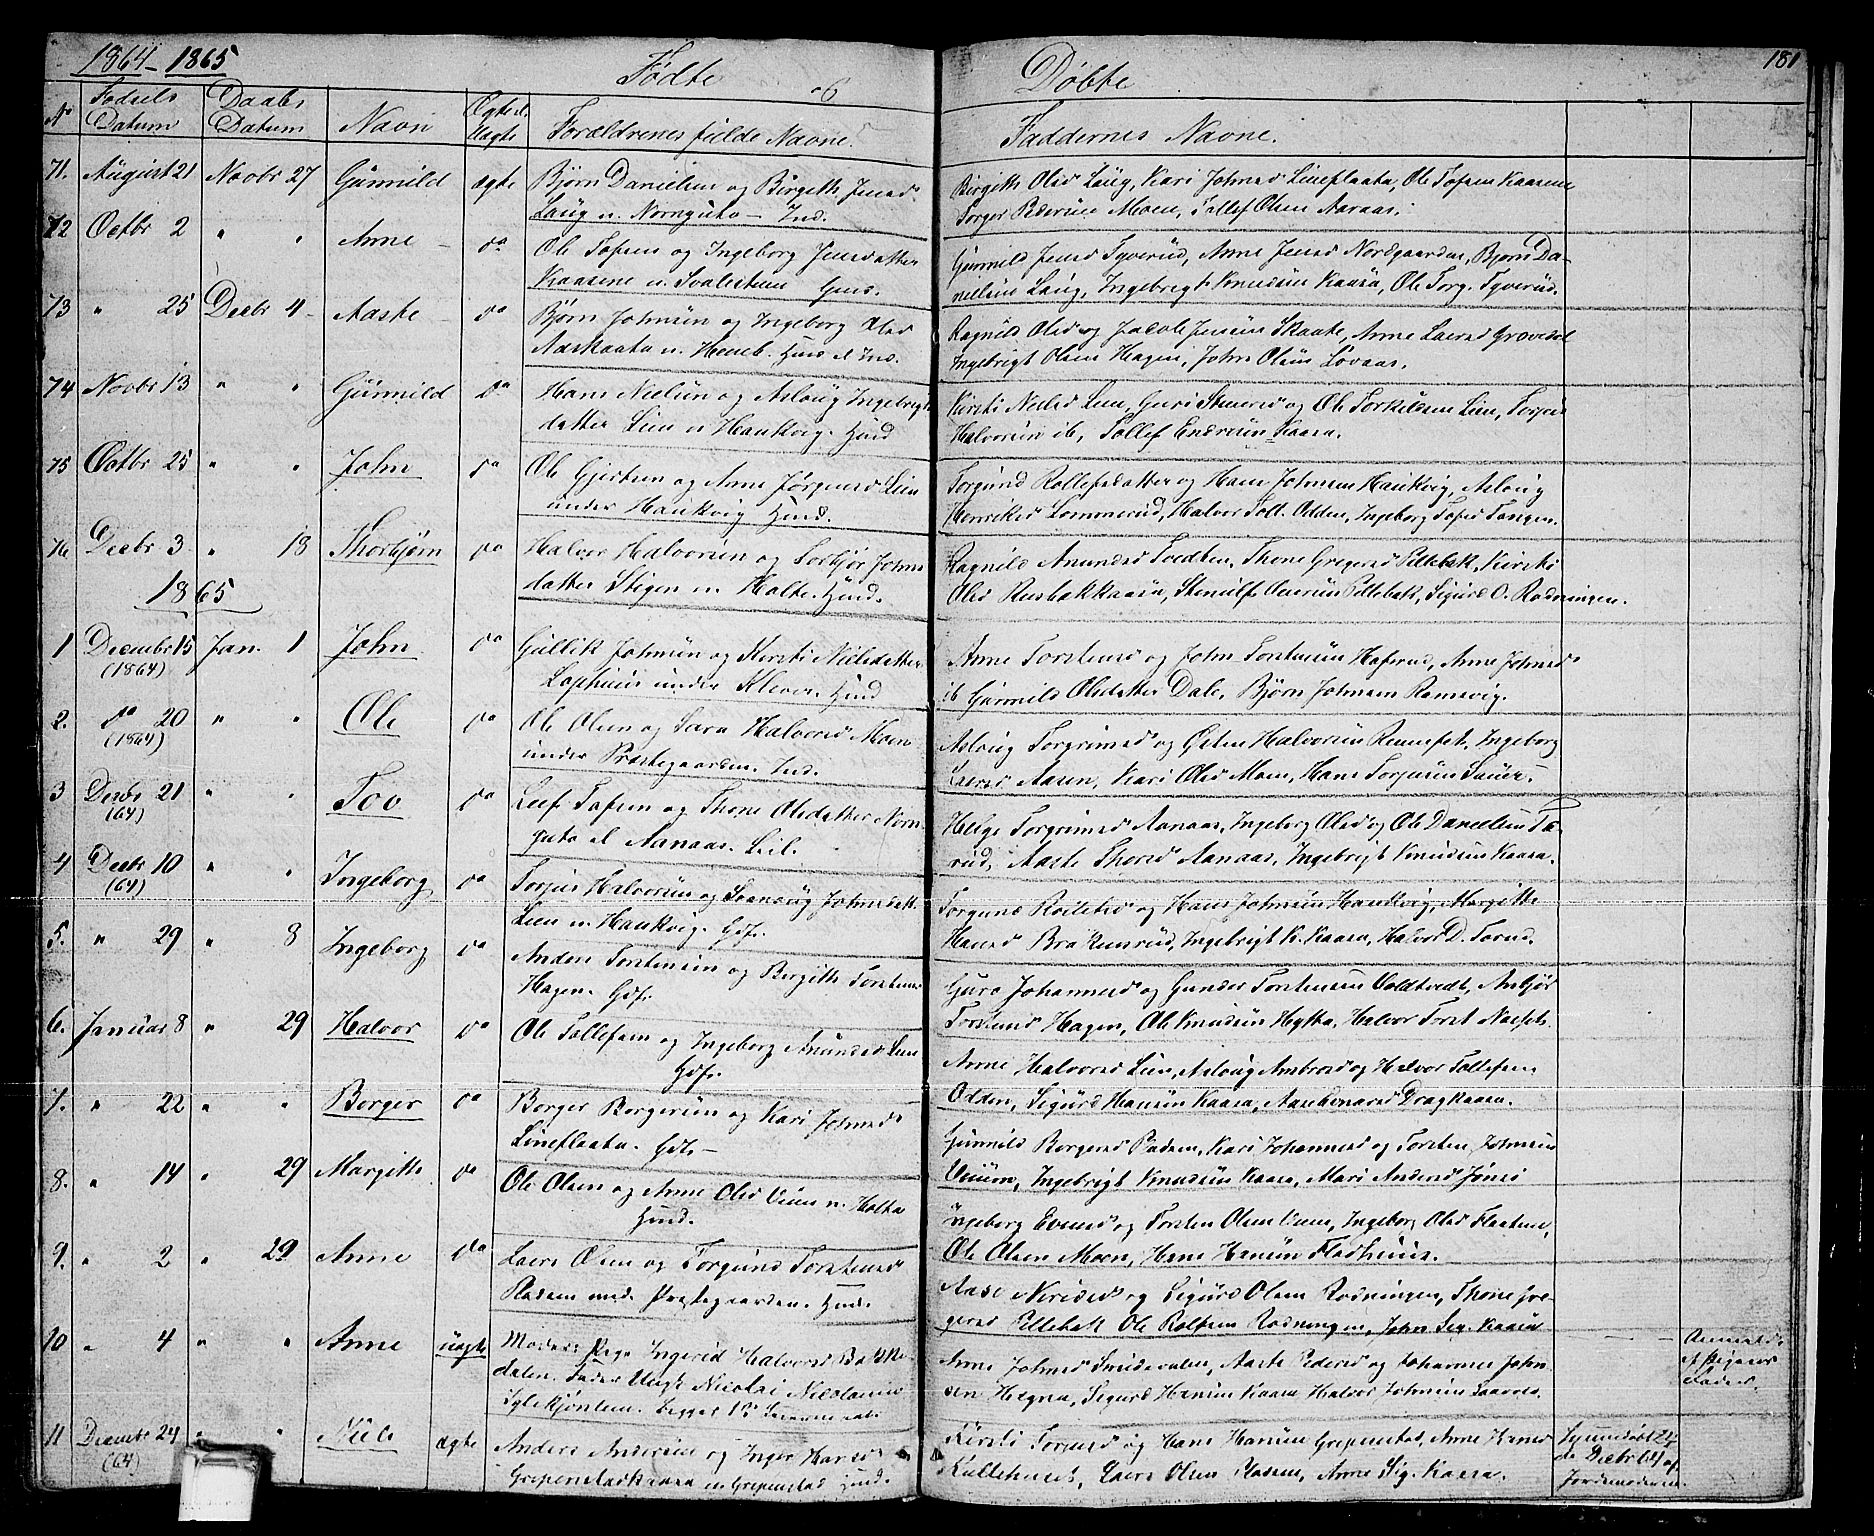 1864-1865
Fødte og Døbte
181
No Fødsels Datum Daabs Datum Navn Ægte el. Uægte Forældrenes fulde Navne. Faddernes Navne.
71. August 21 Novbr 27 Gunnild ægte Bjørn Danielsen og Birgith Jensd
Laug u. Nornguto - Ind.
Birgith Olsd Laug, Kari Johnsd Lineflaata, Ole Tofsen Kaasene
Torger Pedersen Moen, Tollef Olsen Aaraas.
72 Octbr 2 " " Anne do Ole Tofsen og Ingeborg Jensdatter
Kaasene u. Svalestuen
Gunnild Jensd Tyverud, Anne Jensd Nordgaarden, Bjørn Da-
nielsen Laug, Ingebrigt Knudsen Kaasa, Ole Torg. Tyverud.
73 " 25 Decbr 4 Aaste do Bjørn Johnsen og Ingeborg Olsd
Ragnild Olsd og Jacob Jensen Skaate, Anne Laersd Gravedal
Ingebrigt Olsen Hagen, John Olsen Løvaas.
74 Novbr 13 " " Gunnild do Hans Nielsen og Aslaug Ingebrigt
datter Lien u Haukvig. Huusd
Kirsti Nielsd Lien, Guri og Ole Torkildsen Lien, Torjus
Halvorsen ib, Tollef Endresen Kaasa.
75 Octbr 25 " " John do Ole Gjertsen og Anne Jørgensd Lien
under Haukvig Huusd.
Torgund Rollefsdatter og Hans Johnsen Haukvig, Aslaug
Henriksd Lommerud, Halvor Toll. Odden, Ingeborg Tofsd Tangen.
76 Decbr 3 " 18 Thorbjørn do Halvor Halvorsen og Torbjør Johns
datter Stigen u. Holte. Huusd.
Ragnild Amundsd Tvedten, Thone Gregersd Pittebak, Kirsti
Olsd Rusbakkaasa, Stenulf Pittebak, Sigurd O. Rodningen.
1865
1 Decembr 15 (1864) Jan. 1 John do Gullik Johnsen og Kirsti Nielsdatter
Lophuus under Kleven. Huusd
Anne Torstensd og John Torstensen Haferud, Anne Johnsd
ib Gunnild Olsdatter Dale, Bjørn Johnsen Ramsvig.
2. do 20 (1864) " " Ole do Ole Olsen og Sara Halvorsd Moen
under Præstegaarden. Ind.
Aslaug Torgrimsd og Østen Halvorsen Rennefet, Ingeborg
Laersd Aasen, Kari Olsd Moen, Hans Torjusen Sauer.
3 Decbr 21 (64) " " Tov do Leif Tofsen og Thone Olsdatter Norn-
guto el Aanaas. Leil.
Helge Torgrimsd Aanaas, Ingeborg Olsd og Ole Danielsen Ty-
rud, Aaste Thorsd Aanaas, Ingebrigt Knudsen Kaasa.
4 Decbr 10 (64) " " Ingeborg do Torjus Halvorsen og Svanaug Johnsdatt.
Lien u. Haukvig. Gdf.
Torgund Rollefsd og Hans Johnsen Haukvig, Margitte
Hansd Brakenrud, Ingebrigt K. Kaasa, Halvor D. Torne.
5. " 29 " 8 Ingeborg do Anders Torstensen og Birgith Torstensd
Hagen. Gdf.
Guro Johannesd og Gunder Torstensen Voldtvedt, Asbjør
Torstensd Hagen, Ole Knudsen Hytta, Halvor Torst Næset.
6. Januar 8 " 29 Halvor do Ole Tollefsen og Ingeborg Amundsd Lien
Gdf.
Anne Halvorsd Lien, Aslaug Ambrosd og Halvor Tollefsen
Odden, Sigurd Hansen Kaasa, Aasebenaresd Dragkaasa.
7. " 22 " " Borger do Borger Borgersen og Kari Johnsd
Lineflaata. Gdf -
Gunnild Borgersd Pladsen, Kari Johannesd og Torsten Johnsen
Veium, Ingebrigt Knudsen Kaasa, Mari Andersd Jønsi
8. " 14 " 29 Margitte do Ole Olsen og Anne Olsd Veum u. Holta
Huusd.
Ingeborg Evensd og Torsten Olsen Veum, Ingeborg Olsd Flaatene,
Ole Olsen Moen, Hans Hansen Fladhuus.
9. " 2 " 29 Anne do Laers Olsen og Torgund Torstensd
Pladsen under Præstegaarden. Huusd.
Aase Nirisd og Sigurd Olsen Rodningen, Thone Gre-
gersd Pittebak Ole Rolfsen Rodningen, John Sig. Kaasa
10 " 4 " " Anne uægte Moder: Pige Ingerid Halvorsd Bakke-
dalen. Fader Ungk Nicolai Nicolaisen
Anne Johnsd Smidevalen, Aaste Pedersd og Johannes John-
sen Hegna, Sigurd Hansen Kaasa Halvor Johnsen
Anmeldt
af Pigens
Fader.
11 Decembr 24 (64) " " Niels ægte Anders Andersen og Inger Hansd
Grepenstadkaasa u Grepenstad Huusd.
Kirsti Torensd og Hans Hansen Grepenstad, Anne Hansd
Kullehuset, Laers Olsen Pladsen, Anne Sig. Kaasa.
Hjemmedøbt 24
de Decbr 64 af
Jordemoderen.